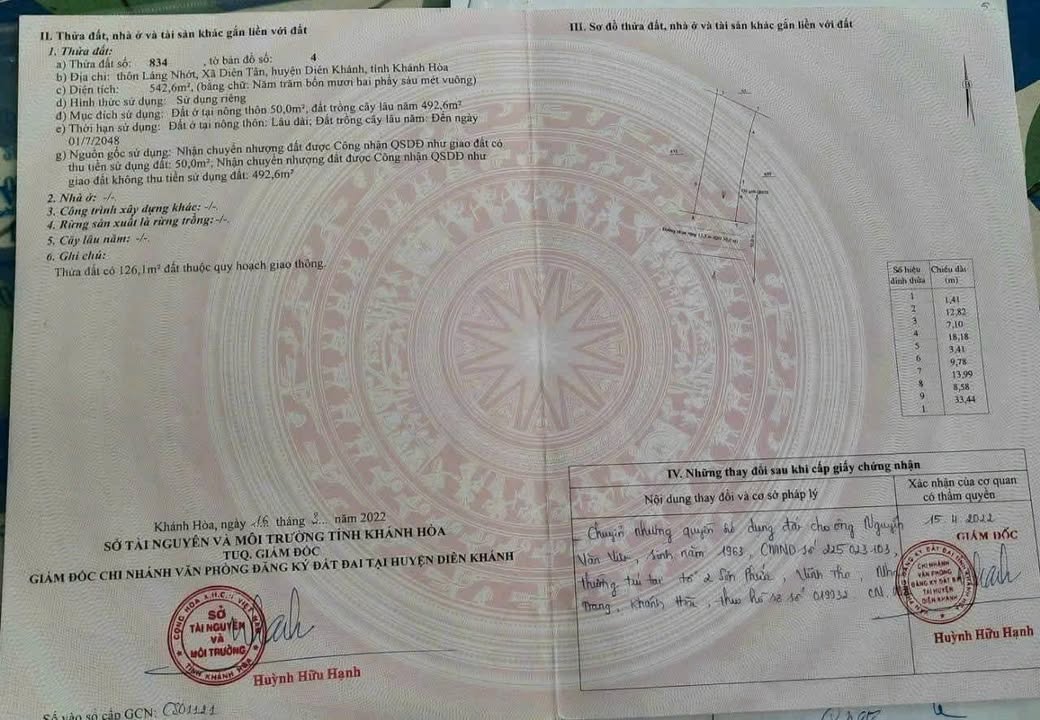 II. Thửa đất, nhà ở và tài sản khác gắn liền với đất
1. Thửa đất:
a) Thửa đất số: 834 , tờ bản đồ số: 4
b) Địa chỉ: thôn Láng Nhớt, Xã Diên Tân, huyện Diên Khánh, tỉnh Khánh Hòa
c) Diện tích: 542,6m², (bằng chữ: Năm trăm bốn mươi hai phẩy sáu mét vuông)
d) Hình thức sử dụng: Sử dụng riêng
đ) Mục đích sử dụng: Đất ở tại nông thôn 50,0m², đất trồng cây lâu năm 492,6m²
e) Thời hạn sử dụng: Đất ở tại nông thôn: Lâu dài; Đất trồng cây lâu năm: Đến ngày
01/7/2048
g) Nguồn gốc sử dụng: Nhận chuyển nhượng đất được Công nhận QSDĐ như giao đất có
thu tiền sử dụng đất: 50,0m²; Nhận chuyển nhượng đất được Công nhận QSDĐ như
giao đất không thu tiền sử dụng đất: 492,6m²
2. Nhà ở: -/-.
3. Công trình xây dựng khác: -/-.
4. Rừng sản xuất là rừng trồng: -/-.
5. Cây lâu năm: -/-.
6. Ghi chú:
Thửa đất có 126,1m² đất thuộc quy hoạch giao thông.
Khánh Hòa, ngày 16 tháng 3 năm 2022
SỞ TÀI NGUYÊN VÀ MÔI TRƯỜNG TỈNH KHÁNH HÒA
TUQ. GIÁM ĐỐC
GIÁM ĐỐC CHI NHÁNH VĂN PHÒNG ĐĂNG KÝ ĐẤT ĐAI TẠI HUYỆN DIÊN KHÁNH
SỞ
TÀI NGUYÊN
VÀ
MÔI TRƯỜNG
TỈNH KHÁNH HÒA
Huỳnh Hữu Hạnh
Số vào sổ cấp GCN: CS01121
III. Sơ đồ thửa đất, nhà ở và tài sản khác gắn liền với đất
Số hiệu đỉnh thửa Chiều dài (m)
1
1,41
2
12,82
3
7,10
4
18,18
5
3,41
6
9,78
7
13,99
8
8,58
9
33,44
1
IV. Những thay đổi sau khi cấp giấy chứng nhận
Nội dung thay đổi và cơ sở pháp lý
Xác nhận của cơ quan
có thẩm quyền
- Chuyển nhượng quyền sử dụng đất cho ông Nguyễn
Văn sinh năm 1963, CMND số 225 023 103,
thường trú tại tổ 2 Sơn Phước, Vĩnh Thọ, Nha
Trang, Khánh Hòa, theo hồ sơ số 019932 CN
15.4.2022
GIÁM ĐỐC
CHI NHÁNH
VĂN PHÒNG
ĐĂNG KÝ ĐẤT ĐAI
TẠI HUYỆN
DIÊN KHÁNH
Huỳnh Hữu Hạnh